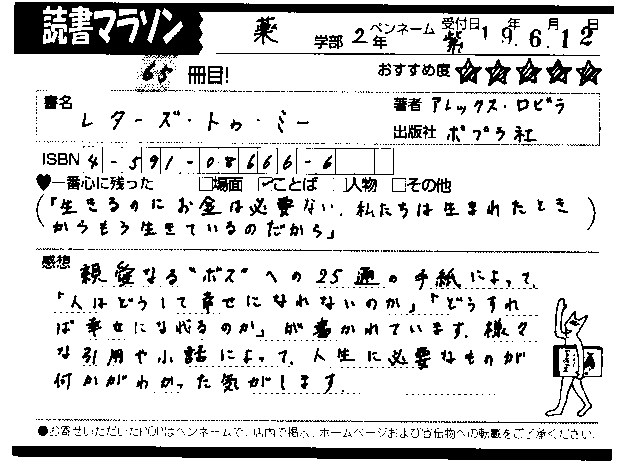 読書マラソン
薬 学部 2年 ペンネーム 紫 受付日 19年 6月 12日
65 冊目! おすすめ度 ☆☆☆☆☆
書名 レターズ・トゥ・ミー
著者 アレックス・ロビラ
出版社 ポプラ社
ISBN 4-591-08666-6
♥一番心に残った □場面 ☑ことば □人物 □その他
(「生きるのにお金は必要ない。私たちは生まれたとき
からもう生きているのだから」)
感想 親愛なる"ボス"への25通の手紙によって、
「人はどうして幸せになれないのか」「どうすれ
ば幸せになれるのか」が書かれています。様々
な引用や小話によって、人生に必要なものが
何かがわかった気がします。
●お寄せいただいたPOPはペンネームで、店内で掲示、ホームページおよび宣伝物への転載をご了承ください。